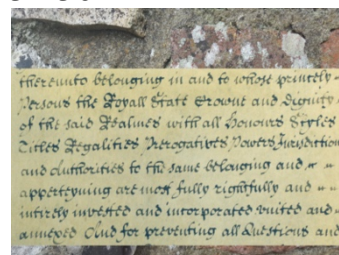 thereunto belonging in and to whose princely
Persons the Royall State Crowne and Dignity
of the said Realmes with all Honours Styles
Titles Regalities Prerogatives Powers Jurisdictions
and Authorities to the same belonging and
apperteyning are most fully rightfully and
intirely invested and incorporated united and
annexed And for preventing all Questions and